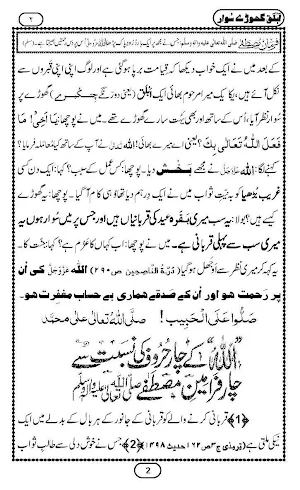 ابلق گھوڑے سوار ۲
فرمانِ مصطفٰے صلی اللہ تعالیٰ علیہ والہ وسلم
کے بعد میں نے ایک خواب دیکھا کہ قیامت برپا ہو گئی ہے اور لوگ اپنی اپنی قبروں سے
نکل آئے ہیں، یکایک میرا مرحوم بھائی ایک اَبلَق (یعنی دو رنگے چتکبرے) گھوڑے پر
سُوار نظر آیا، اُس کے ساتھ اور بھی بہُت سارے گھوڑے تھے۔ میں نے پوچھا: یَا اَخِیْ! مَا
فَعَلَ اللہُ تَعَالٰی بِکَ؟ یعنی اے میرے بھائی! اللہ تعالیٰ نے آپ کے ساتھ کیا معاملہ فرمایا؟
کہنے لگا: اللہ عَزَّوَجَلَّ نے مجھے بَخش دیا۔ پوچھا: کس عمل کے سبب؟ کہا: ایک دن کسی
غریب بُڑھیا کو بہ نیّتِ ثواب میں نے ایک دِرہم دیا تھا وُہی کام آ گیا۔ پوچھا: یہ گھوڑے
کیسے ہیں؟ بولا: یہ سب میری بَقَرہ عید کی قُربانیاں ہیں اور جس پر میں سُوار ہوں یہ
میری سب سے پہلی قُربانی ہے۔ میں نے پوچھا: اب کہاں کا عزم ہے؟ کہا: جنّت کا۔
یہ کہہ کر میری نظر سے اَوجَھل ہو گیا (دُرَّۃُ النّاصِحِین ص۲۹۰) اللہ عَزَّوَجَلَّ کی اُن
پر رَحمت ہو اور اُن کے صَدقے ہماری بے حساب مغفِرت ہو۔
صَلُّوْا عَلَی الْحَبِیْب! صَلَّی اللہُ تَعَالٰی عَلٰی مُحَمَّد
”اللہ“ کے چار حروف کی نسبت سے
چار فرامینِ مصطفےٰ صلی اللہ تعالیٰ علیہ والہ وسلم
﴿1﴾ قربانی کرنے والے کو قربانی کے جانور کے ہر بال کے بدلے میں ایک
نیکی ملتی ہے (ترمذی ج۳ ص۱۶۲ حدیث ۱۴۹۸) ﴿2﴾ جس نے خوش دلی سے طالبِ ثواب
2